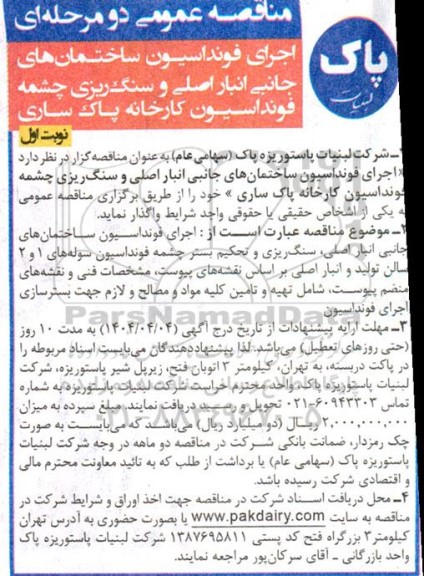 مناقصه عمومی دو مرحله‌ای
پاک
لبنیات
اجرای فونداسیون ساختمان‌های
جانبی انبار اصلی و سنگ‌ریزی چشمه
فونداسیون کارخانه پاک ساری
نوبت اول
۱ـ شرکت لبنیات پاستوریزه پاک (سهامی عام) به عنوان مناقصه‌گزار در نظر دارد
«اجرای فونداسیون ساختمان‌های جانبی انبار اصلی و سنگ‌ریزی چشمه
فونداسیون کارخانه پاک ساری » خود را از طریق برگزاری مناقصه عمومی
به یکی از اشخاص حقیقی یا حقوقی واجد شرایط واگذار نماید.
۲ـ موضوع مناقصه عبارت است از : اجرای فونداسیون ساختمان‌های
جانبی انبار اصلی، سنگ‌ریزی و تحکیم بستر چشمه فونداسیون سوله‌های ۱ و ۲
سالن تولید و انبار اصلی بر اساس نقشه‌های پیوست، مشخصات فنی و نقشه‌های
منضم پیوست، شامل تهیه و تامین کلیه مواد و مصالح و لازم جهت بسترسازی
اجرای فونداسیون
۳ـ مهلت ارایه پیشنهادات از تاریخ درج آگهی (۱۴۰۴/۰۴/۰۴) به مدت ۱۰ روز
(حتی روزهای تعطیل) می‌باشد. لذا پیشنهاددهندگان می‌بایست اسناد مربوطه را
در پاکت دربسته، به تهران، کیلومتر ۳ اتوبان فتح، زیرپل شیر پاستوریزه، شرکت
لبنیات پاستوریزه پاک، واحد محترم حراست شرکت لبنیات پاستوریزه به شماره
تماس ۶۰۹۴۳۳۰۳-۰۲۱ تحویل و رسید دریافت نمایند. مبلغ سپرده به میزان
۲,۰۰۰,۰۰۰,۰۰۰ ریال (دو میلیارد ریال) می‌باشد که می‌بایست به صورت
چک رمزدار، ضمانت بانکی شرکت در مناقصه دو ماهه در وجه شرکت لبنیات
پاستوریزه پاک (سهامی عام) یا برداشت از طلب که به تائید معاونت محترم مالی
و اقتصادی شرکت رسیده باشد.
۴ـ محل دریافت اسناد شرکت در مناقصه جهت اخذ اوراق و شرایط شرکت در
مناقصه به سایت www.pakdairy.com یا بصورت حضوری به آدرس تهران
کیلومتر۳ بزرگراه فتح کد پستی ۱۳۸۷۶۹۵۸۱۱ شرکت لبنیات پاستوریزه پاک
واحد بازرگانی - آقای سرکان‌پور مراجعه نمایند.
ParsNamadData